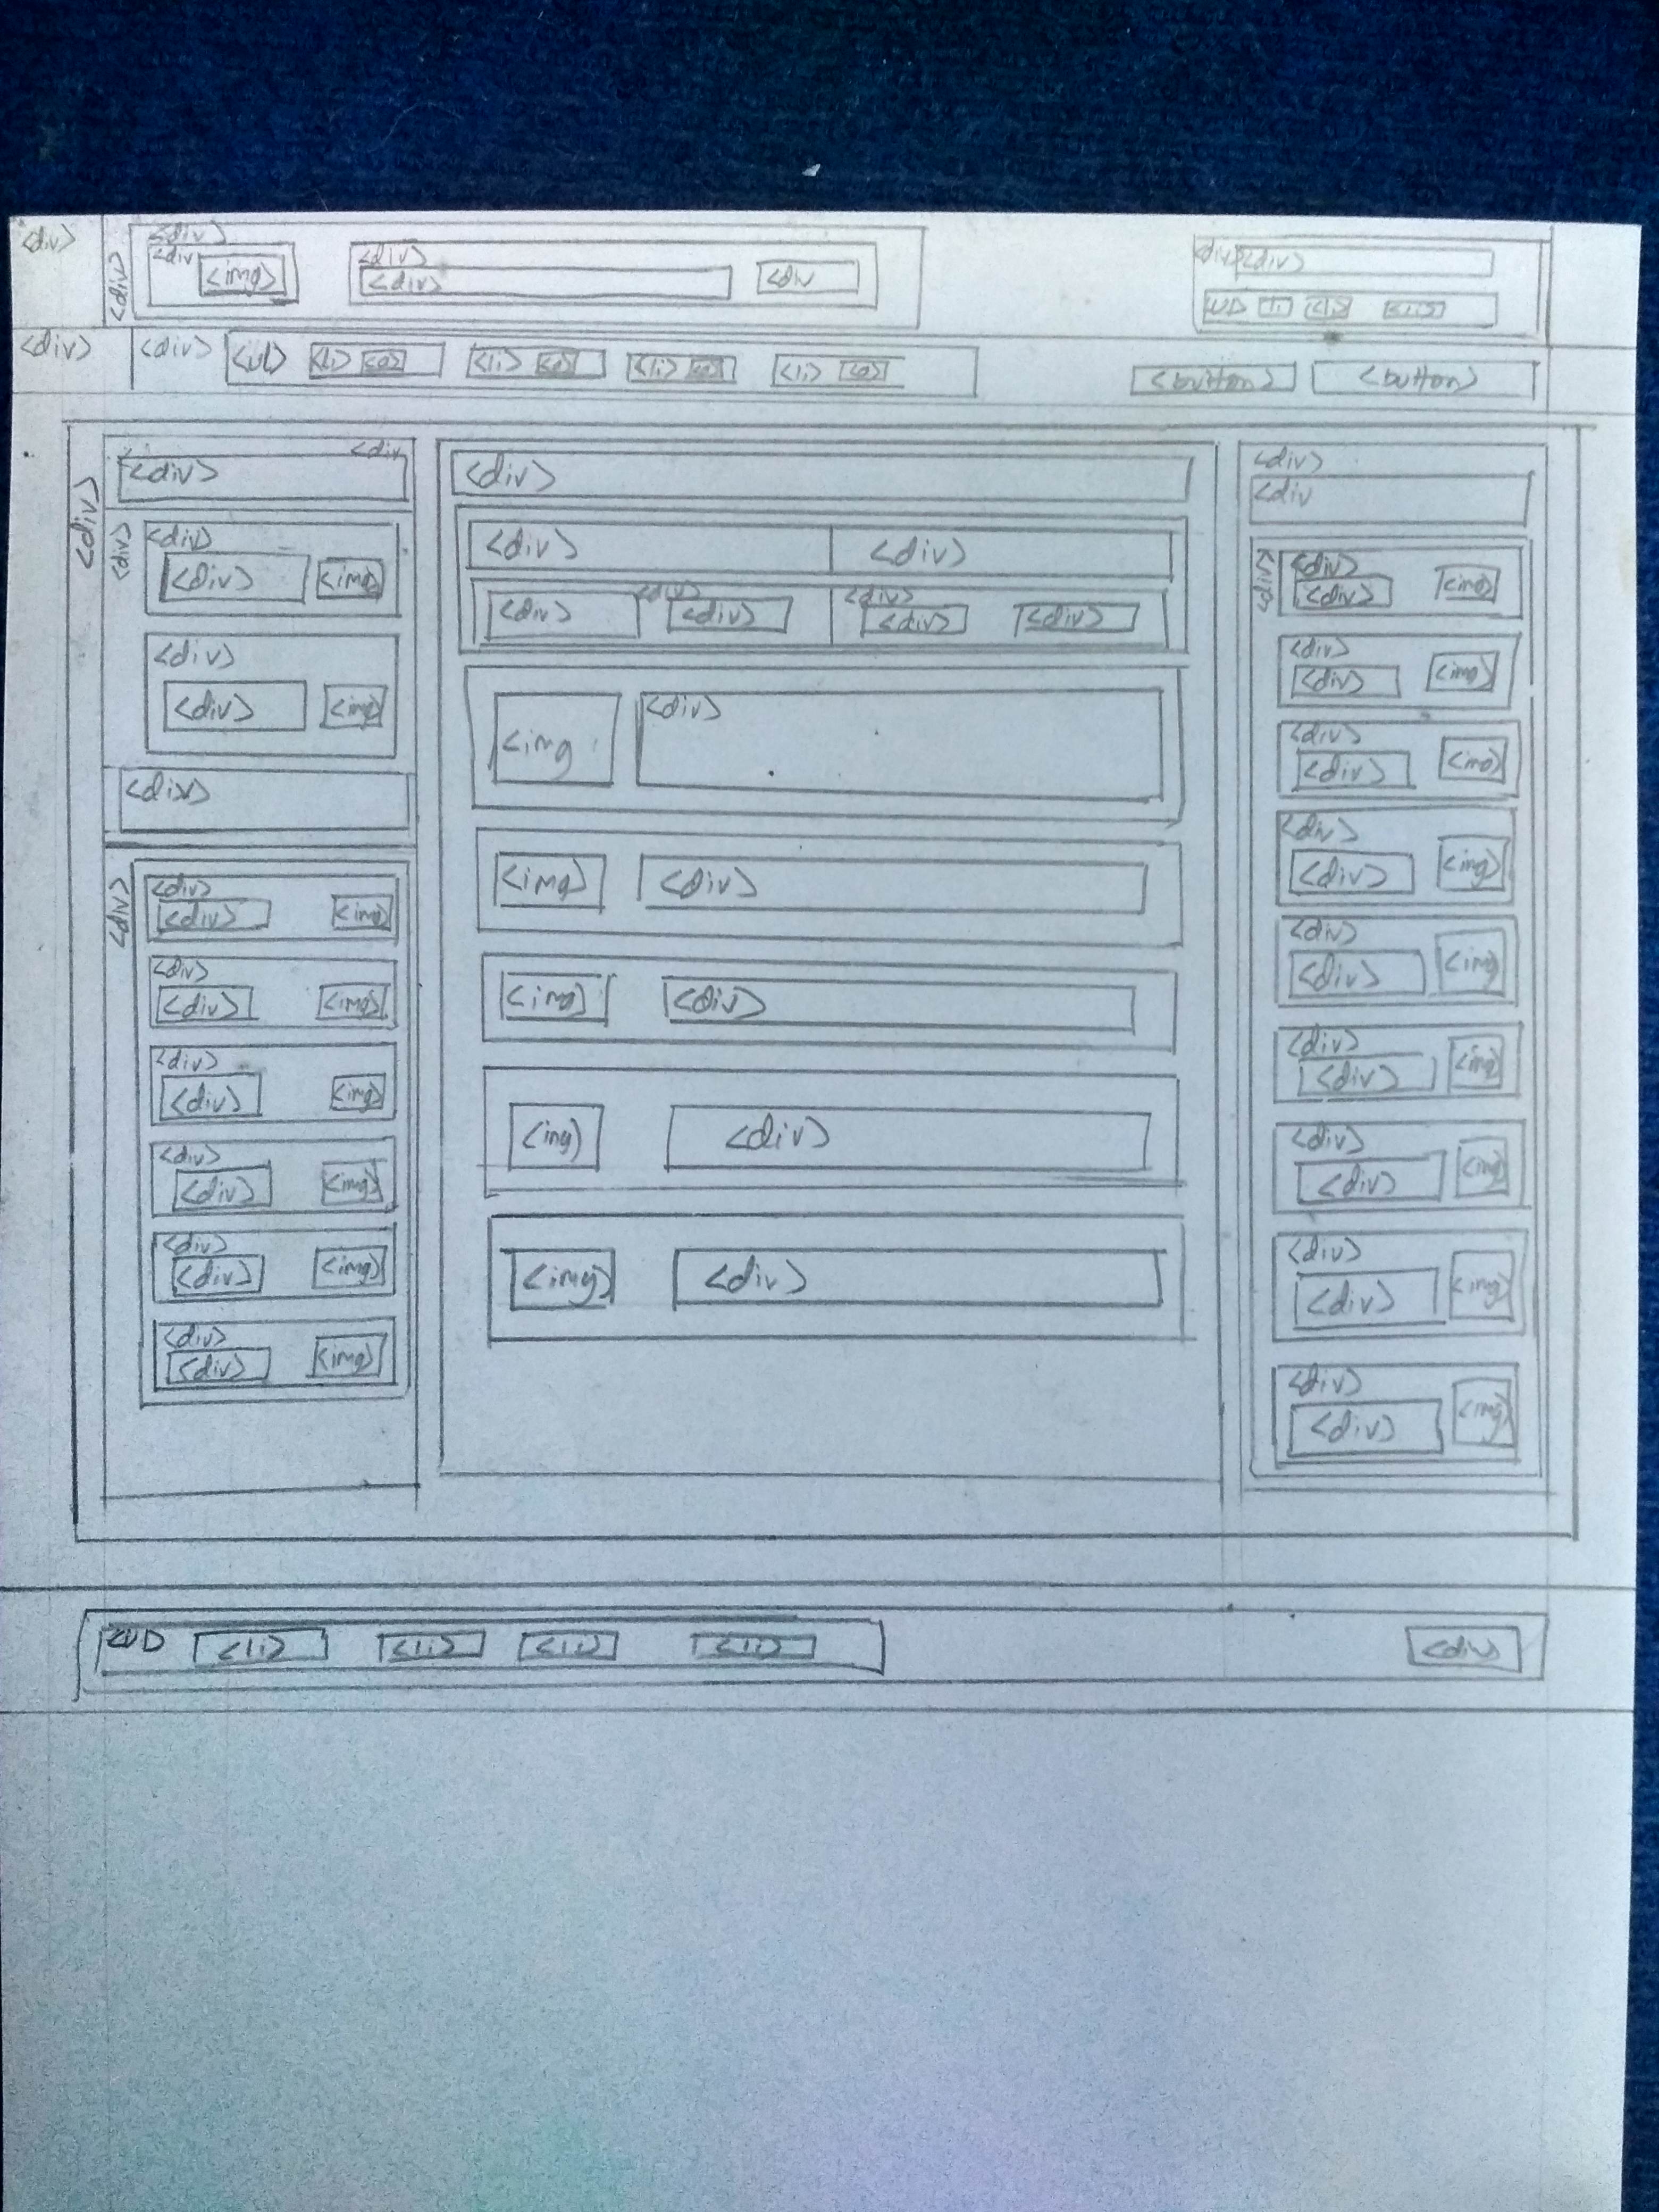 <div>
<div>
<div>
<div <img>
<div>
<div>
<div
<div> <div>
<ul> <li> <li> <li>
<div> <div> <ul> <li> <a> <li> <a> <li> <a> <li> <a> <button> <button>
<div>
<div
<div>
<div>
<div>
<div> <img>
<div>
<div> <img>
<div>
<div>
<div>
<div> <img>
<div>
<div> <img>
<div>
<div> <img>
<div>
<div> <img>
<div>
<div> <img>
<div>
<div> <img>
<div>
<div> <div>
<div> <div> <div> <div> <div> <div>
<img <div>
<img> <div>
<img> <div>
<img> <div>
<img> <div>
<div>
<div
<div>
<div>
<div> <img>
<div>
<div> <img>
<div>
<div> <img>
<div>
<div> <img>
<div>
<div> <img
<div>
<div> <img>
<div>
<div> <img>
<div>
<div> <img>
<div>
<div> <img>
<ul> <li> <li> <li> <li> <div>